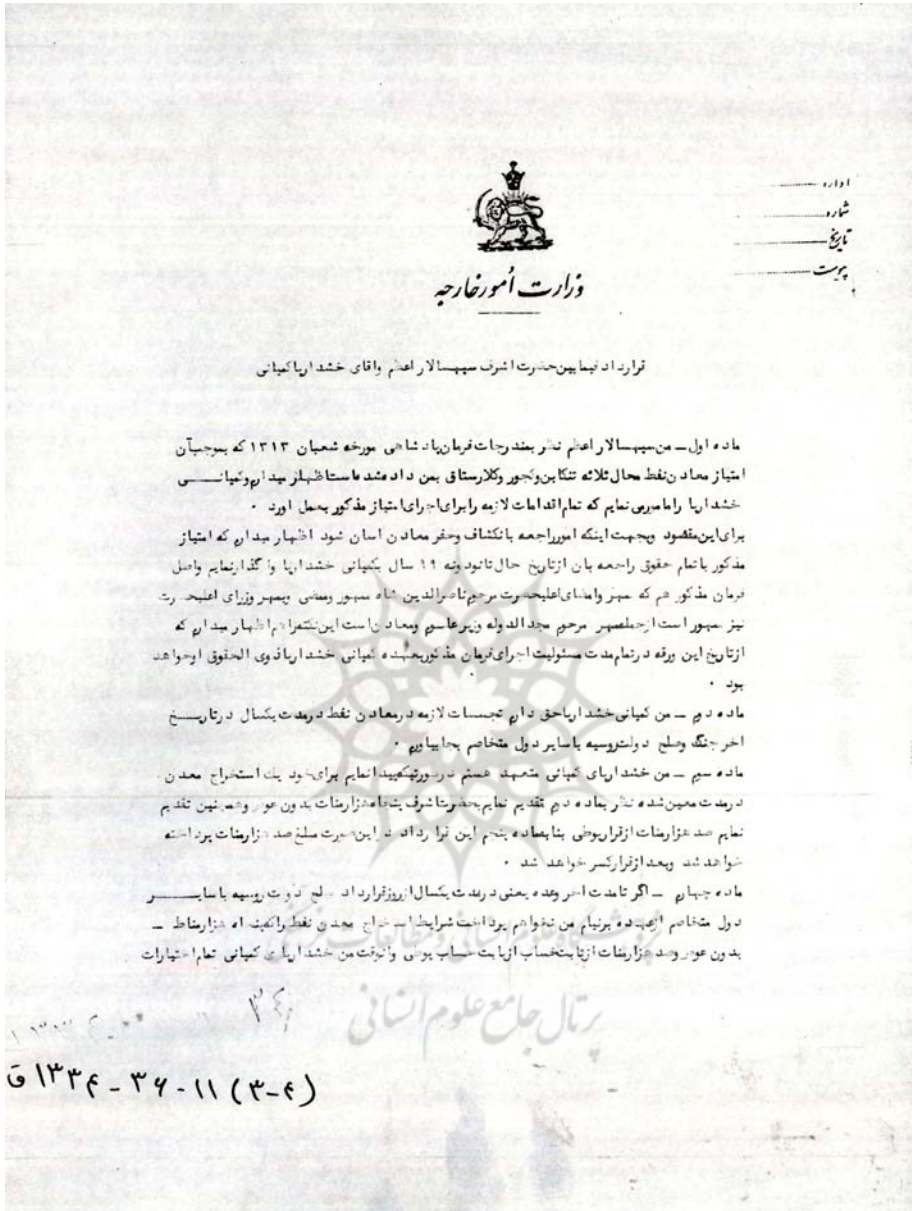 اداره
شماره
تاریخ
پیوست
وزارت اُمور خارجه
قرارداد فیمابین حضرت اشرف سپهسالار اعظم واقای خشداریا کمپانی
ماده اول ــ من سپهسالار اعظم نظر بمندرجات فرمان پادشاهی مورخه شعبان ۱۳۱۳ که بموجب آن
امتیاز معادن نفط محال ثلاثه تنکابن وکجور وکلارستاق بمن داده شده است اظهار میدارم وکمپانــــی
خشداریا رامامور می نمایم که تمام اقدامات لازمه رابرای اجرای امتیاز مذکور بعمل اورد ۰
برای این مقصود وبجهت اینکه امور راجعه بانکشاف وحفر معادن اسان شود اظهار میدارم که امتیاز
مذکور باتمام حقوق راجعه بان ازتاریخ حال تانود ونه ۹۹ سال بکمپانی خشداریا واگذار نمایم باصل
فرمان مذکور هم که بمهر وامضای اعلیحضرت مرحوم ناصرالدین شاه ممهور وممضی وبمهر وزرای اعلیحضرت
نیز ممهور است ازجمله مهر مرحوم مجدالدوله وزیر علوم ومعادن است این نکته راهم اظهار میدارم که
ازتاریخ این ورقه درتمام مدت مسئولیت اجرای فرمان مذکور بعهده کمپانی خشداریا ذوی الحقوق اوخواهد
بود ۰
ماده دوم ــ من کمپانی خشداریا حق دارم تجسسات لازمه درمعادن نفط درمدت یکسال درتاریـــخ
اخر جنگ وصلح دولت روسیه باسایر دول متخاصم بجا بیاورم ۰
ماده سیم ــ من خشداریای کمپانی متعهد هستم درصورتیکه پیدا نمایم برای خود یک استخراج معدن
درمدت معین شده نظر بماده دوم تقدیم نمایم بحضرت اشرف پنجاه هزار منات بدون عوض وهمچنین تقدیم
نمایم صد هزار منات ازقرار پوطی بنابماده پنجم این قرارداد دراین صورت مبلغ صد هزار منات پرداخته
خواهد شد وبعد ازقرار کسر خواهد شد ۰
ماده چهارم ــ اگر تامدت اخر وعده یعنی درمدت یکسال ازروز قرارداد صلح دولت روسیه باسایـــر
دول متخاصم ازعهده برنیایم من نخواهم پرداخت شرایط استخراج معدن نفط راکه پنجاه هزار مناط ــ
بدون عوض وصد هزار منات ازبابت حساب پوطی وانوقت من خشداریای کمپانی تمام اختیارات
پژوهشگاه علوم انسانی و مطالعات فرهنگی
پرتال جامع علوم انسانی
۱۳۳۴-۳۶-۱۱ (۳-۴) ق